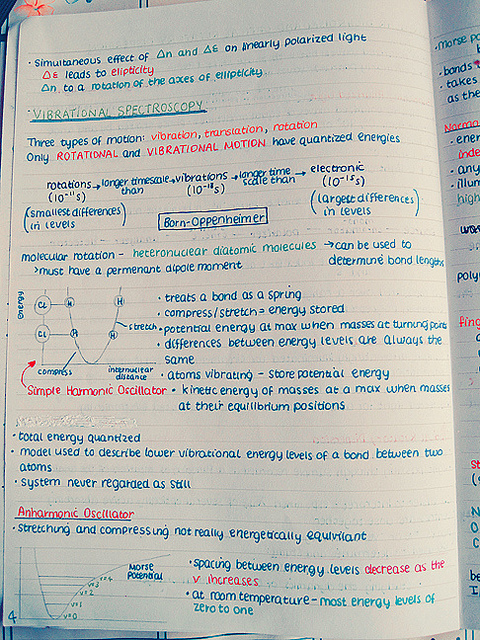 • Simultaneous effect of Δn and Δε on linearly polarized light
Δε leads to elipticity
Δn to a rotation of the axes of ellipticity.
VIBRATIONAL SPECTROSCOPY
Three types of motion: vibration, translation, rotation
Only ROTATIONAL and VIBRATIONAL MOTION have quantized energies
rotations → longer timescale than → vibrations → longer time scale than → electronic
(10⁻¹¹s) (10⁻¹³s) (10⁻¹⁵s)
(smallest differences in levels) (largest differences in levels)
Born-Oppenheimer
molecular rotation - heteronuclear diatomic molecules → can be used to
> must have a permenant dipole moment determine bond lengths
Energy
Cl H H
Cl H H
stretch
compress
internuclear distance
Simple Harmonic Oscillator
• treats a bond as a spring
• compress/stretch = energy stored
• potential energy at max when masses at turning points
• differences between energy levels are always the
same
• atoms vibrating - store potential energy
• kinetic energy of masses at a max when masses
at their equilibrium positions
• total energy quantized
• model used to describe lower vibrational energy levels of a bond between two
atoms
• system never regarded as still
Anharmonic Oscillator
• stretching and compressing not really energetically equivilant
Morse
Potential
v=4
v=3
v=2
v=1
v=0
• spacing between energy levels decrease as the
v increases
• at room temperature - most energy levels of
zero to one
4
• Morse
• bonds
• takes
as the
• ener
inde
• any
• illum
high